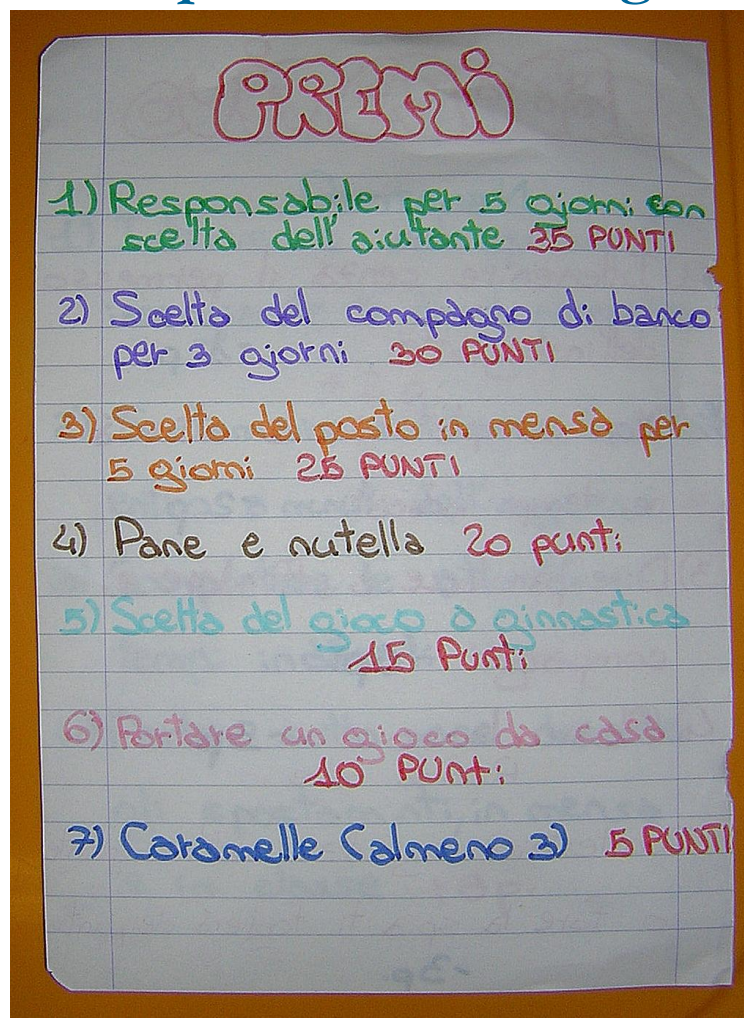 PREMI
1) Responsabile per 5 giorni con
scelta dell'aiutante 35 PUNTI
2) Scelta del compagno di banco
per 3 giorni 30 PUNTI
3) Scelta del posto in mensa per
5 giorni 25 PUNTI
4) Pane e nutella 20 punti
5) Scelta del gioco a ginnastica
15 Punti
6) Portare un gioco da casa
10 PUnti
7) Caramelle (almeno 3) 5 PUNTI